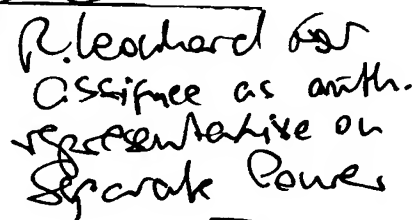 R. Leonhard for
assignee as auth.
representative on
Separate Power